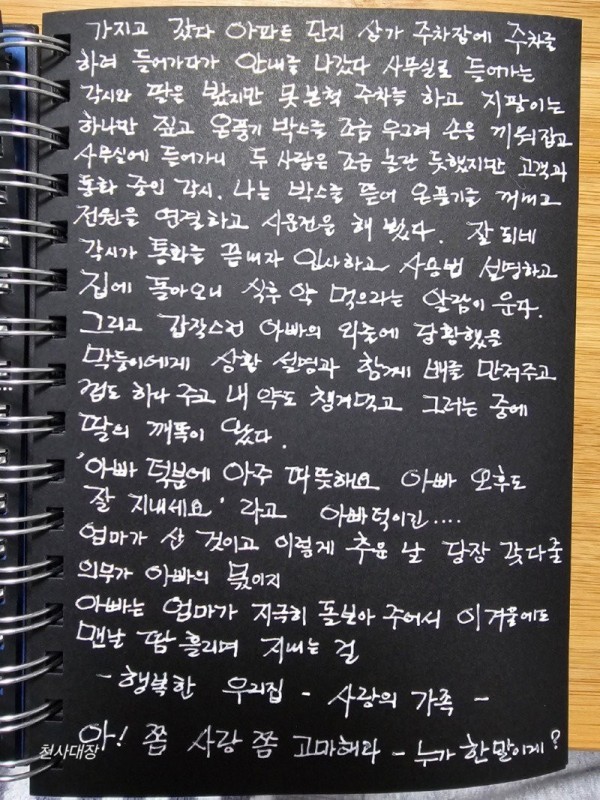 가지고 갔다 아파트 단지 상가 주차장에 주차를
하려 들어가다가 안내를 나갔다 사무실로 들어가는
각시와 딸은 봤지만 못본척 주차를 하고 지팡이는
하나만 짚고 온풍기 박스를 조금 우그려 손은 끼워잡고
사무실에 들어가니 두 사람은 조금 놀란 듯했지만 고객과
통화 중인 각시. 나는 박스를 뜯어 온풍기를 꺼내고
전원을 연결하고 시운전을 해 봤다. 잘 되네
각시가 통화를 끝내자 인사하고 사용법 설명하고
집에 돌아오니 식후 약 먹으라는 알람이 운다.
그리고 갑작스런 아빠의 외출에 당황했을
막둥이에게 상황 설명과 함께 배를 만져주고
껌도 하나 주고 내 약도 챙겨먹고 그러는 중에
딸의 깨똑이 왔다.
'아빠 덕분에 아주 따뜻해요 아빠 오후도
잘 지내세요' 라고 아빠덕이긴....
엄마가 산 것이고 이렇게 추운 날 당장 갖다줄
의무가 아빠의 몫이지
아빠는 엄마가 지극히 돌보아 주어서 이겨울에도
맨날 땀 흘리며 지내는 걸
- 행복한 우리집 - 사랑의 가족 -
아! 쫌 사랑 쫌 고마해라 - 누가 한말이게?
천사대장